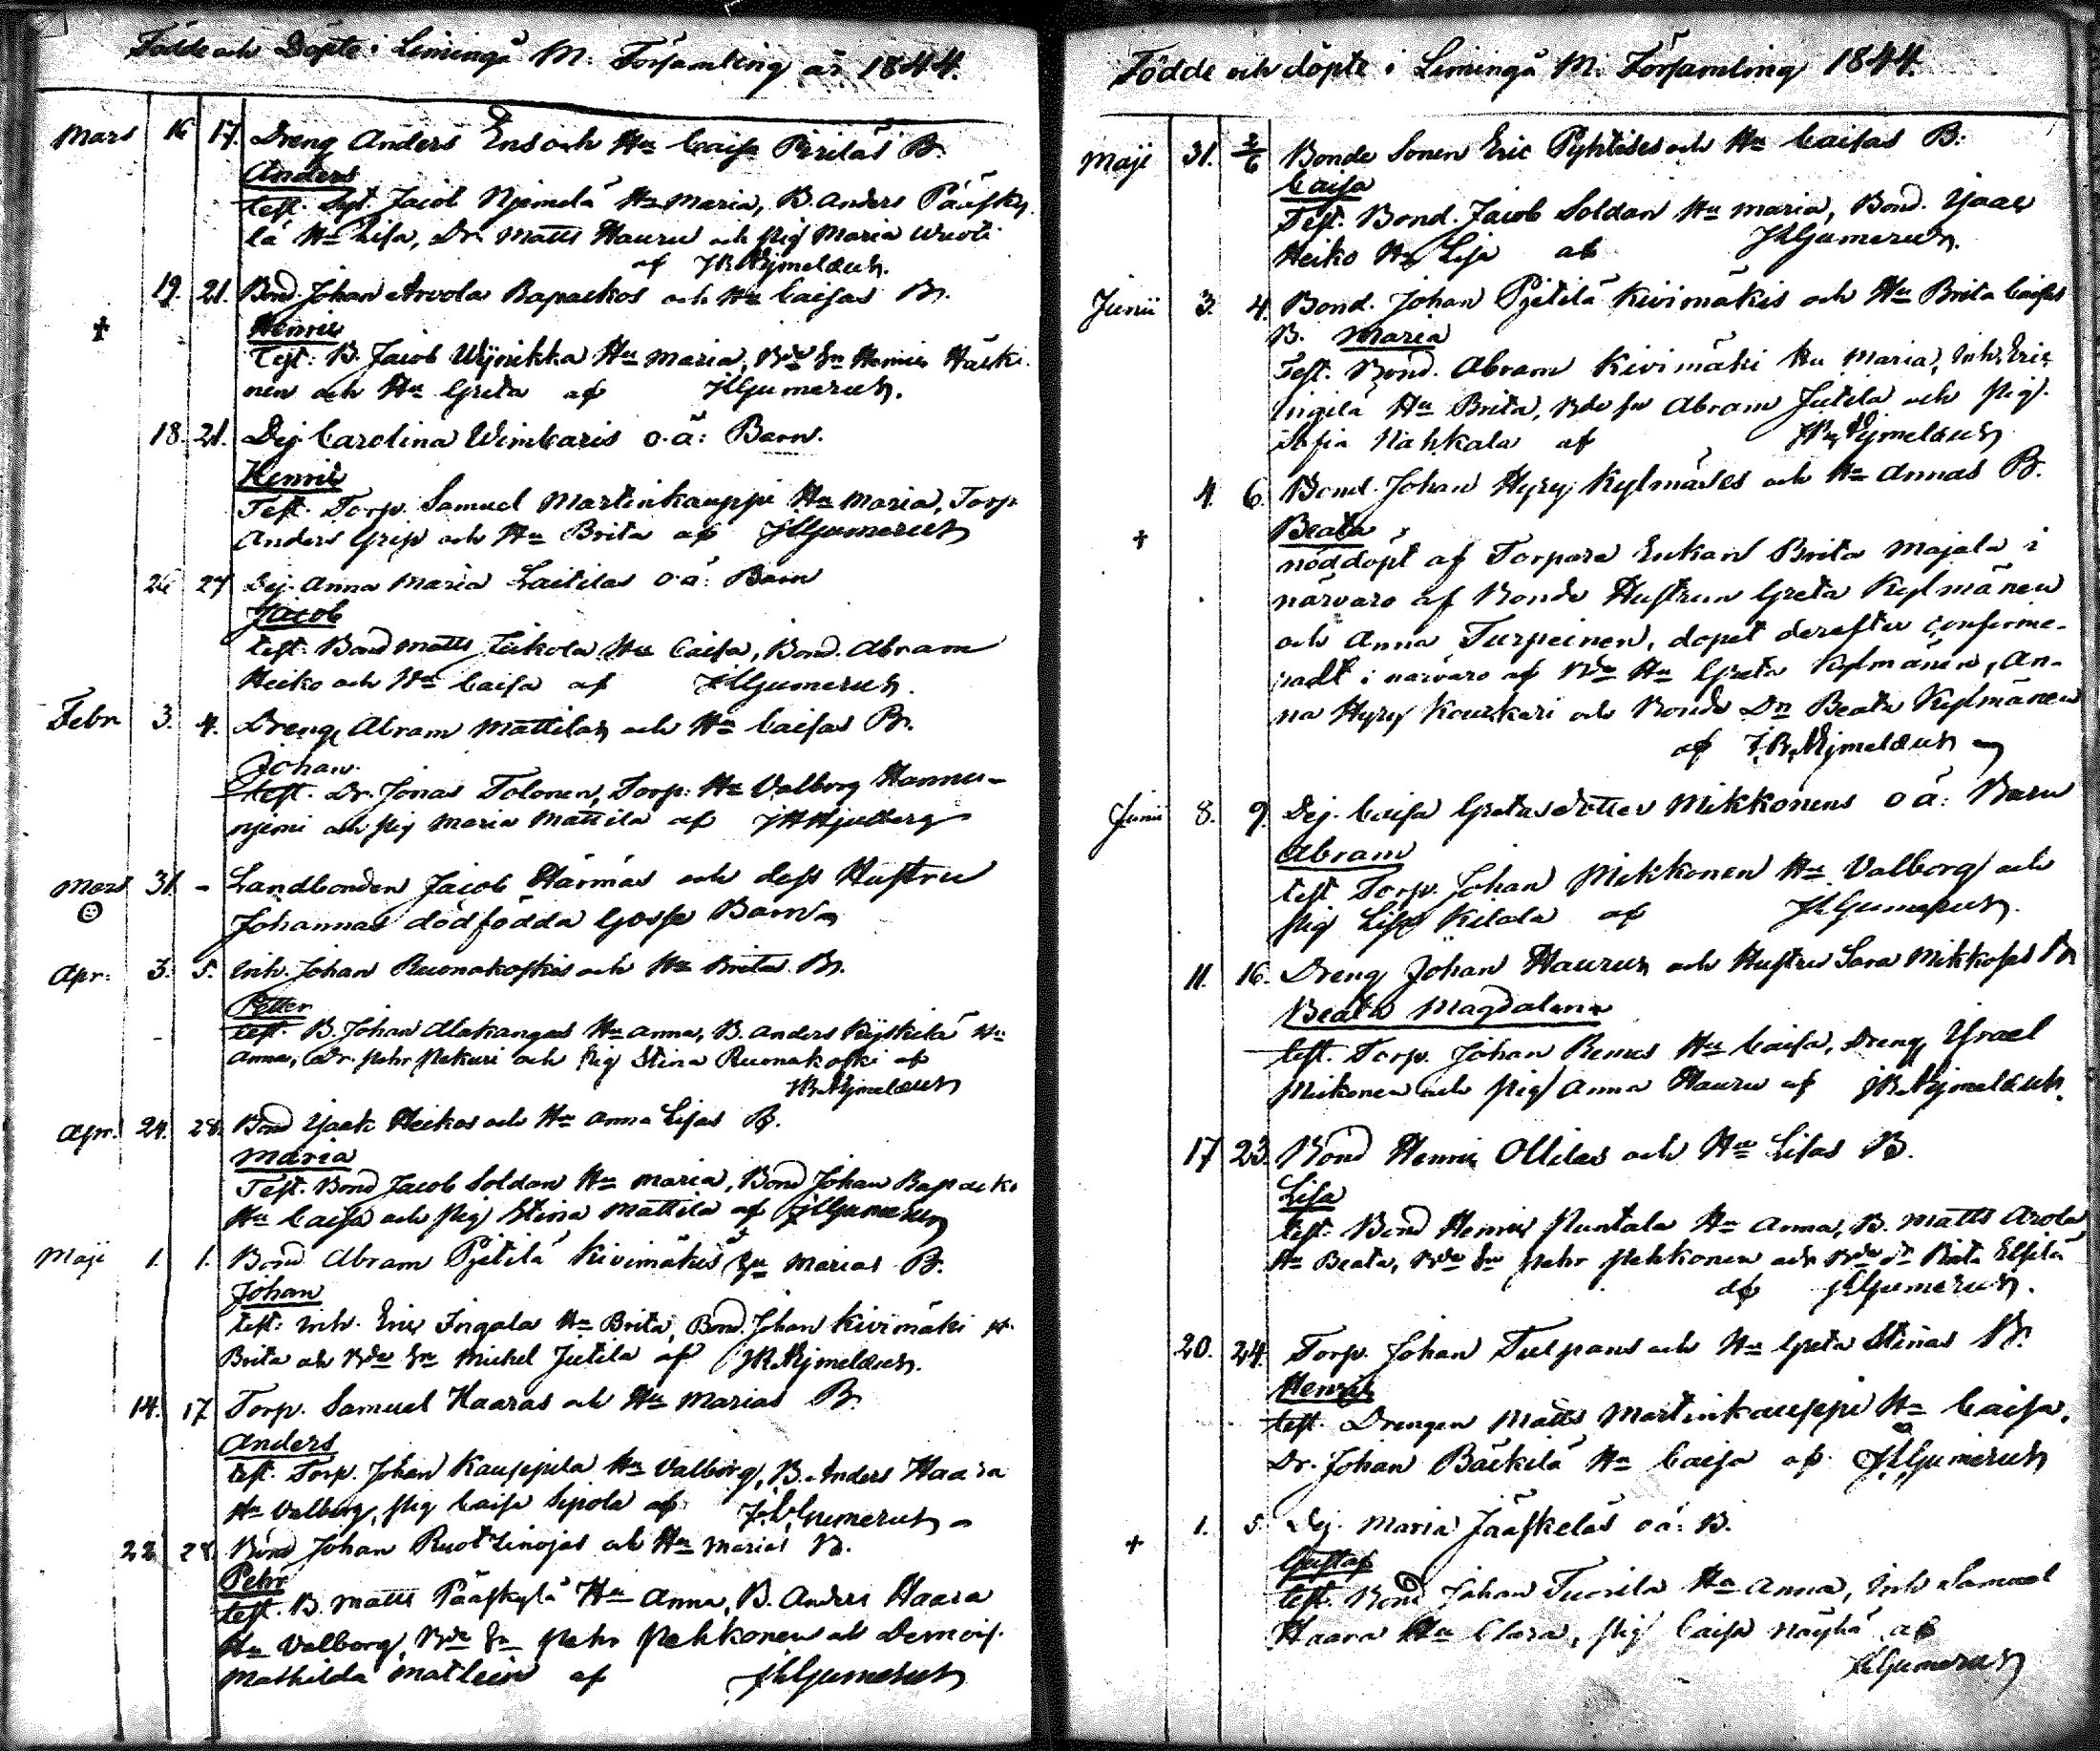 Födde och Döpte i Limingå M. Församling år 1844.
Mars 16 17. Dreng Anders Ens och Hu Caisa Piriläs B.
Anders
test. Jacob Njemelä Hu Maria, B. Anders Pääsky-
lä Hu Lisa, Dr. Matts Hauru och pig Maria
af
19. 21. Bond. Johan Arvola Rapackos och Hu Caisas B.
Henric
Test: B. Jacob Hu Maria, Bde Sn Henric Härki-
nen och Hu Greta af JGumerus.
18. 21. Dej. Carolina Wimparis o. ä: Barn.
Henric
Test. Torp. Samuel Martinkauppi Hu Maria, Torp.
Anders Grip och Hu Brita af JGumerus
26 27 Dej. Anna Maria Laitilas o. ä: Barn
Jacob
test. Bond Matts Hu Caisa, Bond. Abram
Heiko och Hu Caisa af JGumerus.
Febr 3. 4. Dreng Abram Mattilas och Hu Caisas B.
Johan.
test. Dr. Jonas Tolonen, Torp: Hu Valborg Hannu-
njemi och pig Maria Mattila af
Mars 31. - Landbonden Jacob Härmäs och dess Hustru
Johannas dödfödda Gosse Barn
Apr: 3. 5. Inh. Johan Ruonakoskis och Hu Britas B.
Petter
test. B. Johan Alakangas Hu Anna, B. Anders Hu
Anna, Dr. Pehr Pekuri och pig Stina Ruonakoski af
Apr. 24. 28. Bond Isaac Heikos och Hu Anna Lisas B.
Maria
Test. Bond Jacob Soldan Hu Maria, Bond Johan Rapacko
Hu Caisa och pig Stina Mattila af JGumerus
Maji 1. 1. Bond Abram Pjetilä Kivimäkis Hu Marias B.
Johan
test: Inh. Eric Ingala Hu Brita, Bond. Johan Kivimäki H.
Brita och Bde Sn Michel Jutila af
14. 17 Torp. Samuel Haaras och Hu Marias B.
Anders
test. Torp. Johan Kauppila Hu Valborg, B. Anders Haara
Hu Valborg, pig Caisa Sipola af JGumerus
22 28. Bond Johan Ruotzinojas och Hu Marias B.
Pehr
test. B. Matts Pääskylä Hu Anna, B. Anders Haara
Hu Valborg, Bde Sn Pehr Pehkonen och Demois.
Mathilda Matlein af JGumerus
Födde och döpte i Limingå M. Församling 1844.
Maji 31. 2/6 Bonde Sonen Eric och Hu Caisas B.
Caisa
Test. Bond. Jacob Soldan Hu Maria, Bond. Isaac
Heiko Hu Lisa af JGumerus.
Junii 3. 4. Bond. Johan Pjetilä Kivimäkis och Hu Brita Caisas
B. Maria
Test. Bond. Abram Kivimäki Hu Maria, Inh. Eric
Ingila Hu Brita, Bde Sn Abram Jutila och pig.
Sofia Nahkala af
4. 6. Bond. Johan Hyry Kylmäses och Hu Annas B.
Beata
nöddöpt af Torpare Enkan Brita Majala i
närvaro af Bonde Hustrun Greta Kylmänen
och Anna Turpeinen, dopet derefter confirme-
radt i närvaro af Bde Hu Greta Kylmänen, An-
na Hyry Kourkari och Bonde Dn Beata Kylmänen
af
Junii 8. 9. Dej. Caisa Gretas dotter Mikkonens o ä: Barn
Abram
test Torp. Johan Mikkonen Hu Valborg och
pig Lisa Kilala af JGumerus.
11. 16. Dreng Johan Haurus och Hustru Sara Mikkos B
Beata Magdalena
test. Torp. Johan Remes Hu Caisa, Dreng Israel
Mikonen och pig Anna Hauru af
17 23. Bond Henric Ollilas och Hu Lisas B.
Lisa
test. Bond Henric Puntala Hu Anna, B. Matts Arola
Hu Beata, Bde Sn Pehr Pehkonen och Bde Dn Brita
af JGumerus.
20. 24. Torp. Johan Tulpans och Hu Greta Stinas B.
Henric
test. Drengen Matts Martinkauppi Hu Caisa.
Dr. Johan Bäckilä Hu Caisa af JGumerus
1. 5. Dej. Maria Jääskeläs o ä: B.
Gustaf
test. Bond Johan Tuorila Hu Anna, Inh Samuel
Haara Hu Clara, pig Caisa Näyhä af
JGumerus